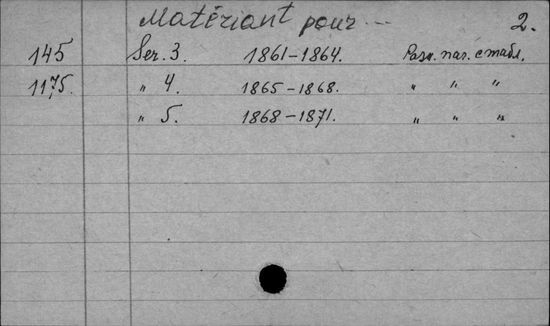 Matériant pour ... 2.
145 Ser. 3. 1861-1864. Разн. паг. с табл.
1175 " 4. 1865-1868. " " "
" 5. 1868-1871. " " "